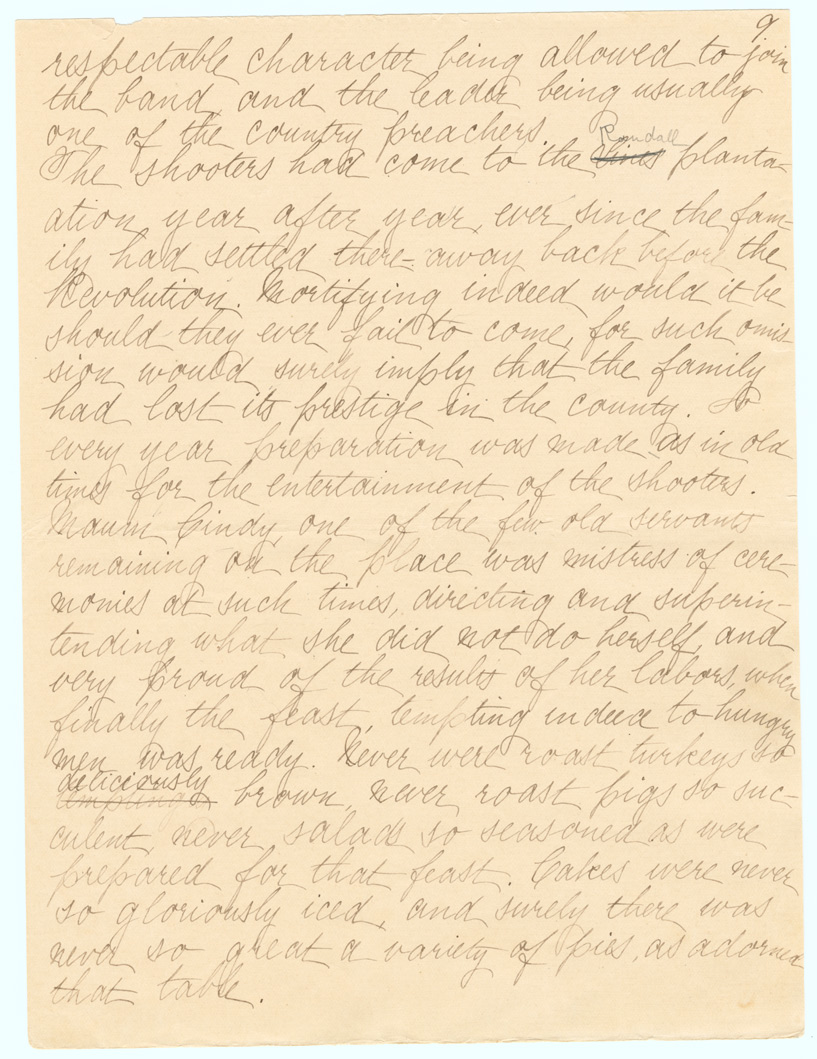 9
respectable character being allowed to join
the band, and the leader being usually
one of the country preachers.
Randall
The shooters had come to the planta-
ation year after year, ever since the fam-
ily had settled there- away back before the
Revolution. Mortifying indeed would it be
should they ever fail to come, for such omis-
sion would surely imply that the family
had lost its prestige in the county. So
every year preparation was made as in old
times for the entertainment of the shooters.
Maum Cindy, one of the few old servants
remaining on the place was mistress of cere-
monies at such times, directing and superin-
tending what she did not do herself, and
very proud of the results of her labors, when
finally the feast, tempting indeed to hungry
men, was ready. Never were roast turkeys so
deliciously
tempting brown, never roast pigs so suc-
culent, never salads so seasoned as were
prepared for that feast. Cakes were never
so gloriously iced, and surely there was
never so great a variety of pies, as adorned
that table.